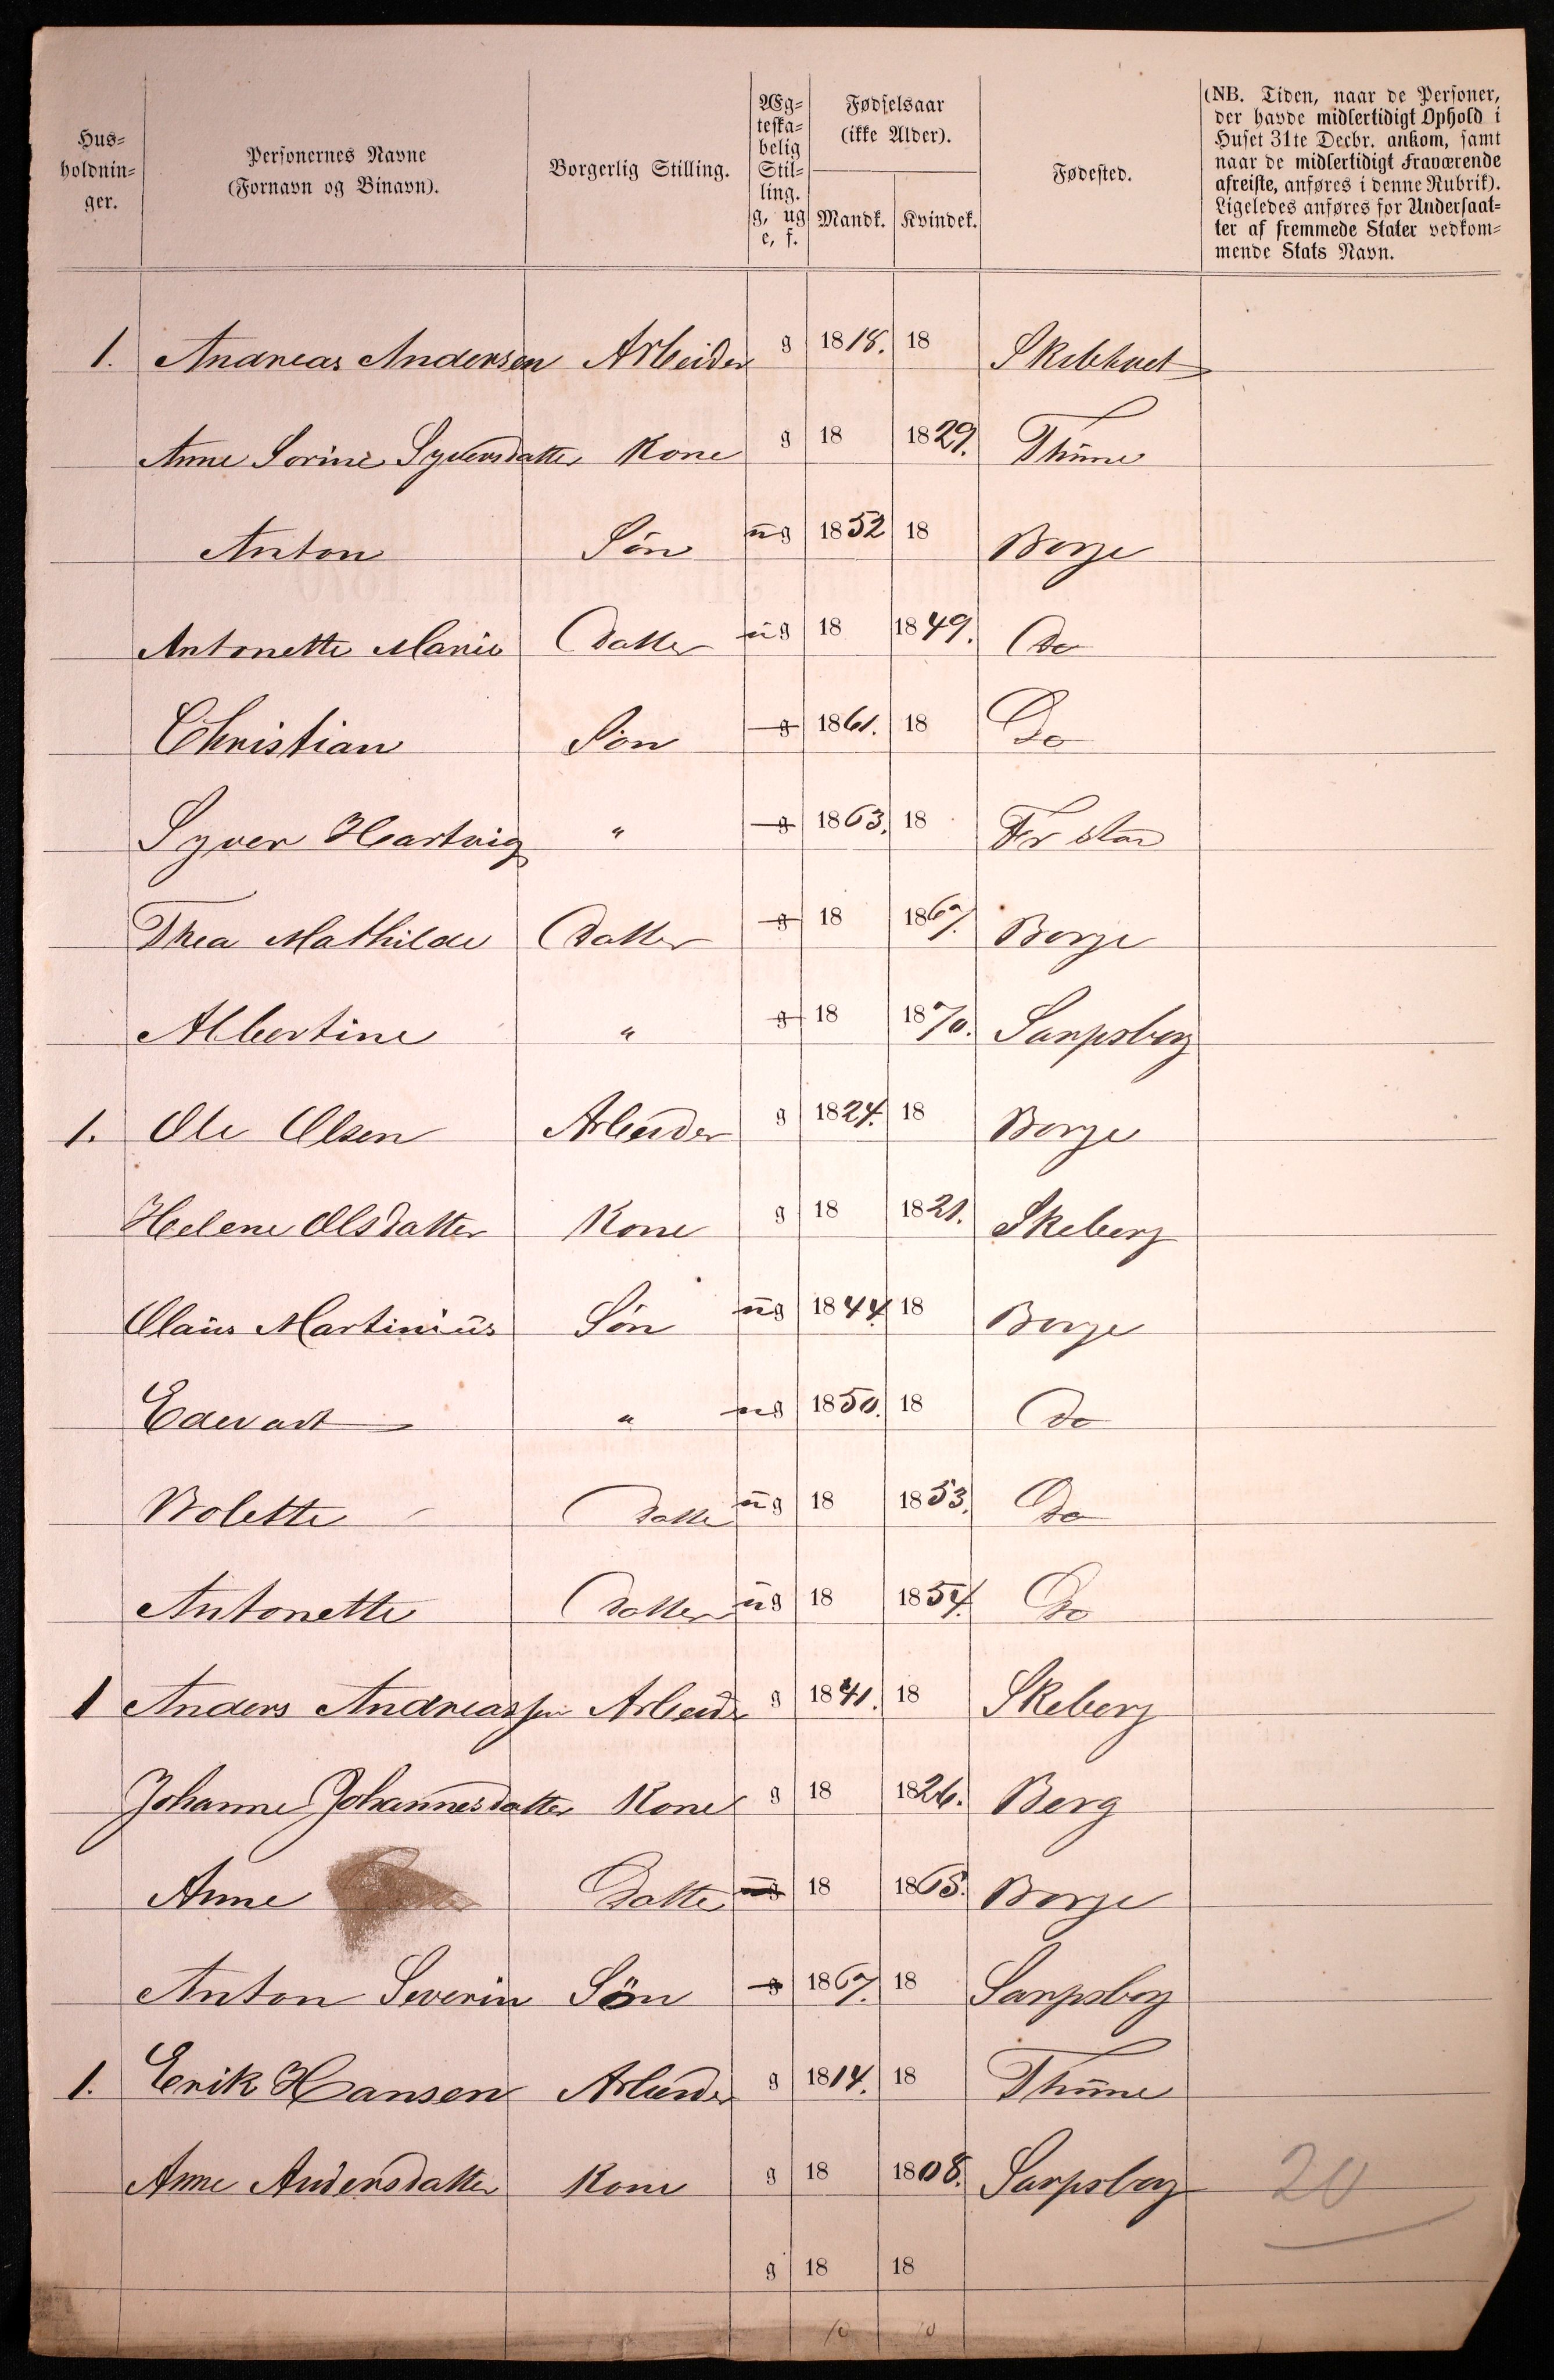 Hus-
holdnin-
ger.
Personernes Navne
(Fornavn og Binavn).
Borgerlig Stilling.
Æg-
teska-
belig
Stil-
ling.
g, ug
e, f.
Fødselsaar
(ikke Alder).
Mandk. Kvindek.
Fødested.
(NB. Tiden, naar de Personer,
der havde midlertidigt Ophold i
Huset 31te Decbr. ankom, samt
naar de midlertidigt fraværende
afreiste, anføres i denne Rubrik).
Ligeledes anføres for Undersaat-
ter af fremmede Stater vedkom-
mende Stats Navn.
1. Andreas Andersen Arbeider g 1818. 18
Anne Sorine Syversdatter Kone g 18 1829. Thune
Anton Sön ug 1852 18 Borge
Antonette Marie Datter ug 18 1849. Do
Christian Sön g 1861. 18 Do
Syver Hartvig " g 1863. 18 Fr stad
Thea Mathilde Datter g 18 1867. Borge
Albertine " g 18 1870. Sarpsborg
1. Ole Olsen Arbeider g 1824. 18 Borge
Helene Olsdatter Kone g 18 1821. Skeberg
Olaus Martinius Sön ug 1844. 18 Borge
Edevart " ug 1850. 18 Do
Bolette Datte ug 18 1853. Do
Antonette Datter ug 18 1854. Do
1 Anders Andreassen Arbeider g 1841. 18 Skeberg
Johanne Johannesdatter Kone g 18 1826. Berg
Anne Datter ug 18 1865. Borge
Anton Severin Sön g 1867. 18 Sarpsborg
1. Erik Hansen Arbeider g 1814. 18 Thune
Anne Andersdatter Kone g 18 1808. Sarpsborg 20
g 18 18
10 10